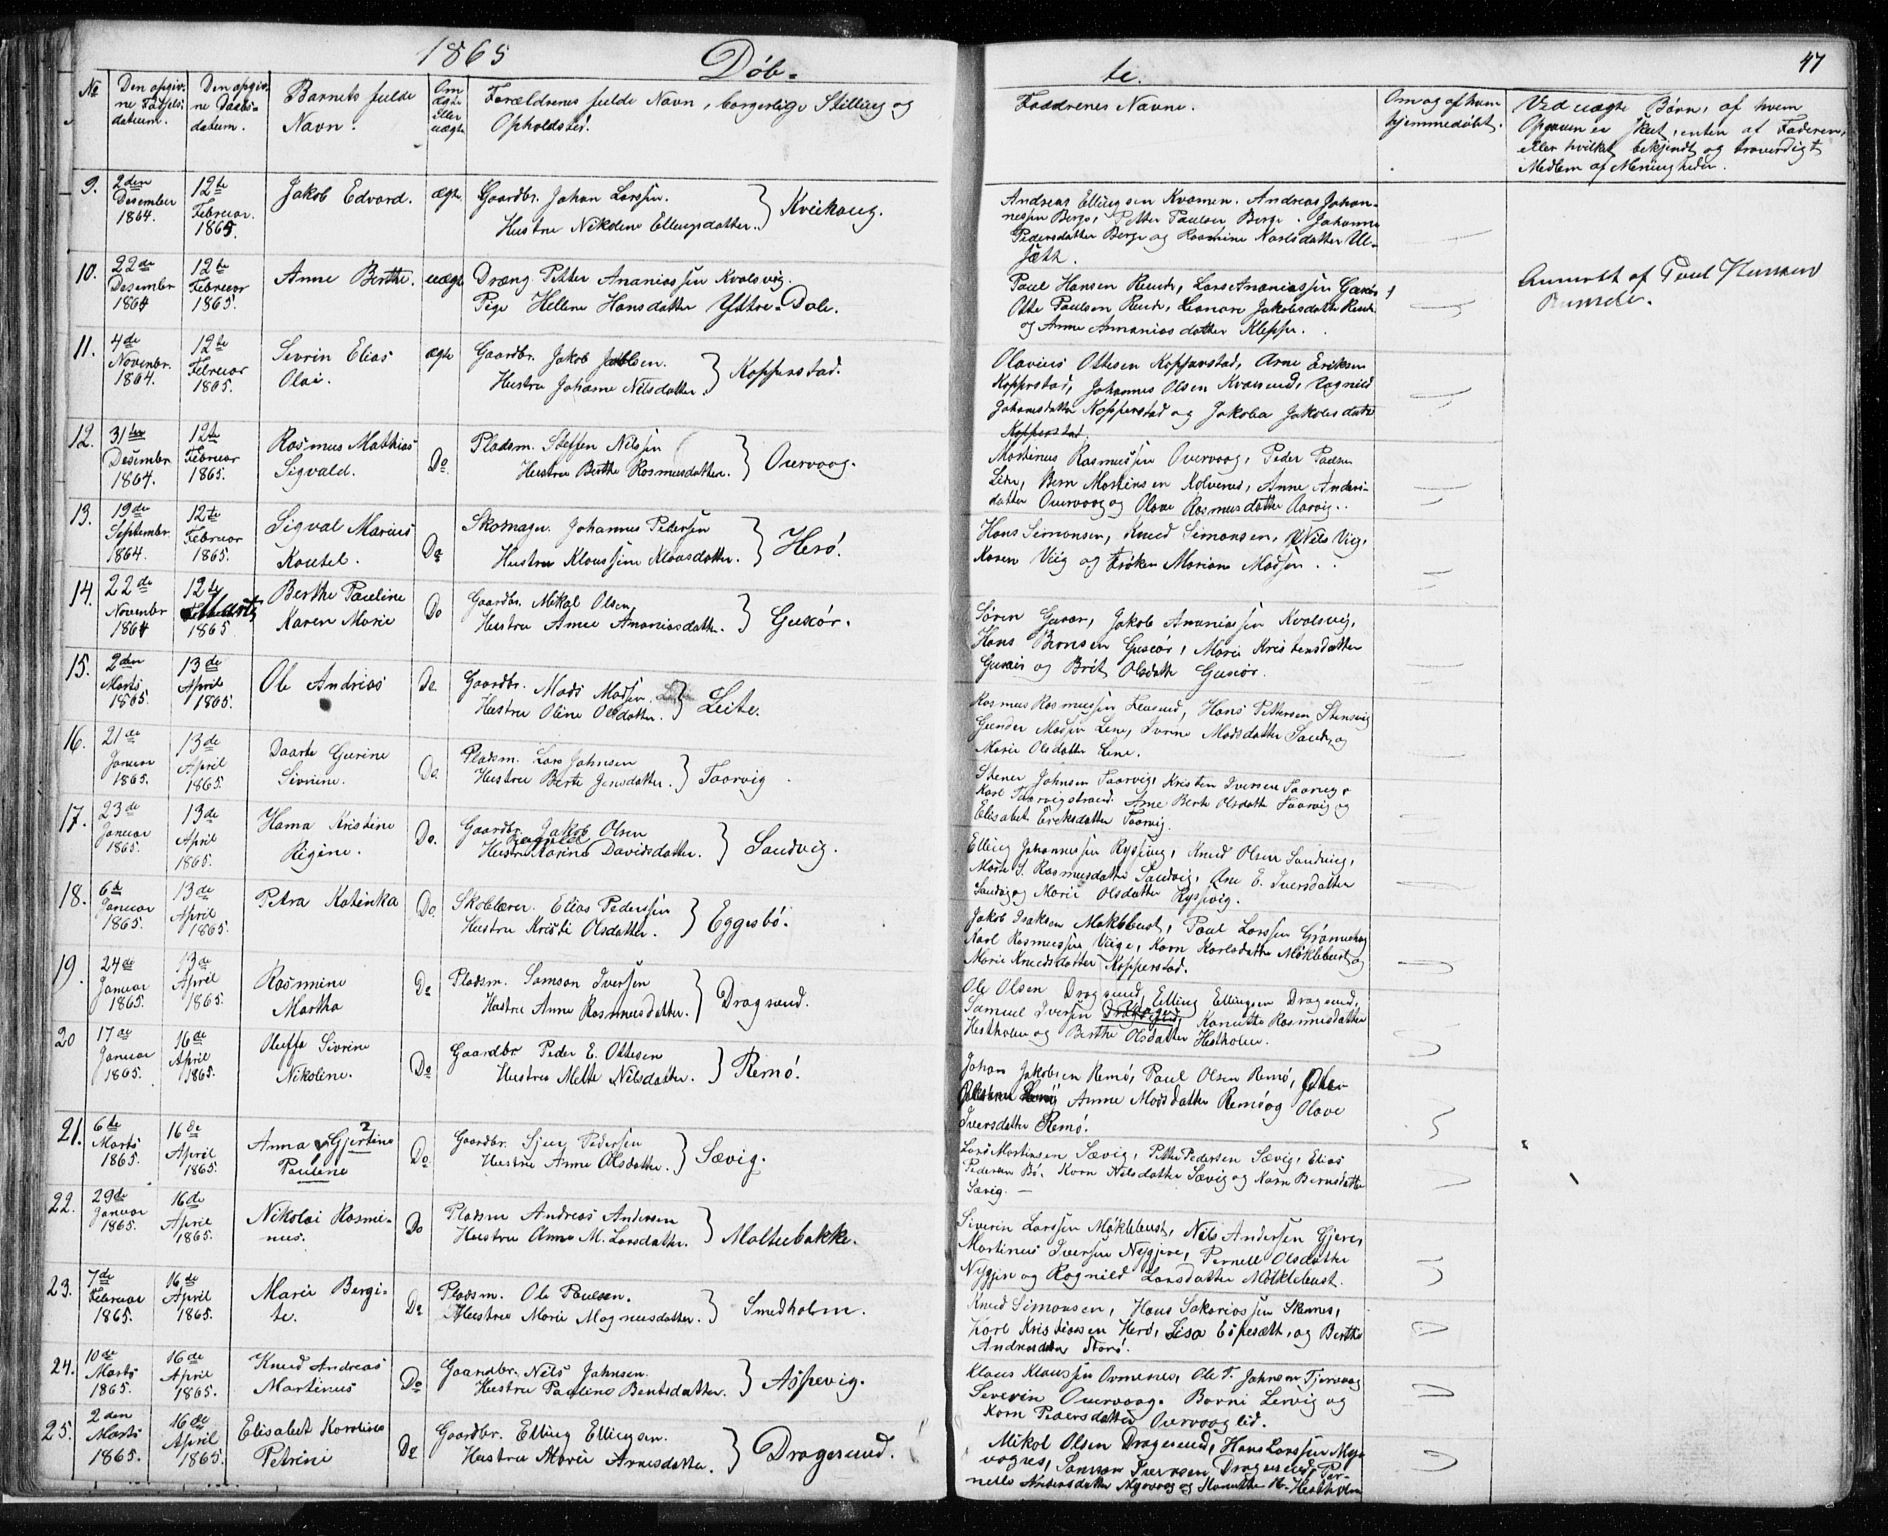 1865
Døb-
te.
47
No
Den opgiv-
ne Fødsels-
datum.
Den opgiv-
ne Daabs-
datum.
Barnets fulde
Navn.
Om
ægte
eller
uægte
Forældrenes fulde Navn, borgerlige Stilling og
Opholdsted.
Faddrenes Navne.
Om og af hvem
hjemmedøbt.
Ved uægte Børn, af hvem
Opgaven er skeet, enten af Faderen,
eller hvilket bekjendt og troværdigt
Medlem af Menigheden.
9.
2den
Desember
1864.
12te
Februar.
1865.
Jakob Edvard.
ægte
Gaardbr. Johan Larssen.
Hustru Nikoline Ellingsdatter.
Kveikaug.
Andreas Ellingsen Kvamen. Andreas Johan-
nessen Berge, Petter Paulsen Berge. Johanne
Pedersdatter Berge og Rasmine Karlsdatter Ul-
sæth.
10.
22de
Desember
1864
12te
Februar
1865.
Anne Berthe.
uægte
Dræng Petter Ananiassen Kvalsvig.
Pige Hellene Hansdatter Yttre-Dale.
Paul Hansen Runde, Lars Ananiassen
Otte Paulsen Runde, Leonore Jakobsdatte Runde
og Anne Annanias datter Kleppe.
Anmeldt af Paul Hansen
Runde.
11.
4de
Novembr.
1864.
12te
Februar
1865.
Sevrin Elias
Olai.
ægte
Gaardbr. Jakob
Hustru Johanne Nilsdatter.
Kopperstad.
Olavius Ottesen Kopperstad, Arne Eriksen
Kopperstad, Johannes Olsen Kvarsund, Ragnild
Johansdatter Kopperstad og Jakoba Jakobsdatte
Kopperstad.
12.
31te
Desembr.
1864.
12te
Februar
1865.
Rasmus Mathias
Sigvald.
Do.
Pladsm. Steffen Nilssen
Hustru Berthe Rasmusdatter.
Overvaag.
Martinus Rasmussen Overvaag, Peder
Bern Mortensen Kolvenes, Anne Anders-
datter Overvaag og Olave Rasmusdatter
13.
19de
September
1864.
12te
Februar
1865.
Sigval Marius
Do
Skomager. Johannes Pedersen
Hustru Klaussine Klausdatter.
Herø.
Hans Simonsen, Knud Simonsen, Nils Viig,
Karen Viig og Frøken Mariane Madsen.
14.
22de
Novembr
1864
12te
Marts
1865
Berthe Pauline
Karen Marie
Do
Gaardbr. Mikal Olsen
Hustru Anne Ananiasdatter.
Guscør.
Søren Jakob Ananiassen Kvalsvig,
Hans Bernsen Guscør, Marie Kristensdatter
og Brit Olsdatt Guscør.
15.
2den
Marts
1865.
13de
April
1865.
Ole Andrias
Do.
Gaardbr. Mads Madsen
Hustru Oline Olsdatter.
Leite.
Rasmus Rasmussen Hans Pettersen
Gunder Madsen Madsdatter og
Marie Olsdatter
16.
21de
Januar
1865.
13de
April
1865.
Daarte Gurine
Sivrine.
Do.
Pladsm. Lars Johnsen
Hustru Berte Jensdatter.
Taarvig
Stener Johnsen Taarvig, Kristen Iversen Taarvig,
Karl Taarvigstrand. Ane Berte Olsdatte Taarvig og
Elisabet Eriksdatter Taarvig.
17.
23de
Januar
1865.
13de
April
1865.
Hanna Kristine
Regine.
Do.
Gaardbr. Jakob Olsen
Ragnilde
Hustru Karine Davidsdatter.
Sandvig.
Elling Johannessen Ryssevig, Knud Olsen Sandvig,
Marte S. Rasmusdatter Sandvig, Ane E. Iversdatter
Sandvig og Marie Olsdatter Ryssvig.
18.
6te
Januar
1865.
13de
April
1865.
Petra Katinka
Do.
Skolelærer. Elias Pederssen
Hustru Kristi Olsdatter.
Eggesbø.
Jakob Isaksen Møklebust, Paul Larssen
Karl Rasmussen Karn Karlsdatter Møklebust og
Marie Knudsdatter Kopperstad.
19.
24de
Januar
1865.
13de
April
1865.
Rasmine
Martha
Do
Pladsm. Samson Iverssen
Hustru Anne Rasmusdatter.
Dragsund.
Ole Olsen Dragsund, Elling Ellingsen Dragsund,
Samuel Iversen Kanutte Rasmusdatter
Hestholm og Berthe Olsdatter Hestholm.
20
17de
Januar
1865.
16de
April
1865.
Oluffa Sivrine
Nikoline.
Do
Gaardbr Peder E. Ottesen
Hustru Mette Nilsdatter.
Remø.
Johan Jakobsen Remø, Paul Olsen Remø,
Anne Madsdatter Remø og Olave
Iversdatter Remø.
21.
6te
Marts
1865.
16de
April
1865.
Anna Gjertine
Pauline
Do
Gaardbr. Sjur Pedersen
Hustru Anne Olsdatter.
Sævig.
Lars Martinsen Sævig, Petter Pedersen Sævig, Elias
Pedersen Bø. Karn Nilsdatter Sævig og Karn Berntsdatter
Sævig.
22.
29de
Januar
1865.
16de
April
1865.
Nikolai Rasmi-
nus.
Do
Pladsm Andreas Andersen
Hustru Anne M. Larsdatter.
Moltubakke.
Siverin Larssen Møklebust, Nils Andersen Gjere,
Martinus Iversen Nygjere, Pernell Olsdatter
og Ragnild Larsdatter Møklebust.
23.
7de
Februar
1865.
16de
April
1865.
Marie Bergi-
te.
Do
Pladsm. Ole Paulsen.
Hustru Marie Magnusdatter.
Smedholm.
Knud Simonsen, Hans Sakariassen
Karl Kristiansen Herø, Lisa Espesæth, og Berthe
Andreasdatter Storø.
24.
10de
Marts
1865.
16de
April
1865.
Knud Andreas
Martinus
Do
Gaardbr. Nils Johnsen.
Hustru Pauline Bentsdatter.
Aspevig.
Klaus Klaussen Ormenes, Ole T. Johnsen Tjervaag
Severin Overvaag. Barni Lervig og
Karn Pedersdatter Overvaaglid.
25.
2den
Marts
1865.
16de
April
1865.
Elisabet Karoline
Petrine
Do
Gaardbr. Elling Ellingsen.
Hustru Marie Arnesdatter.
Dragesund.
Mikal Olsen Dragesund, Hans Larssen Myr-
vages, Samson Iversen, Dragesund, Per-
nelle Andersdatter Myrvaag og Kanutte R. Hestholm